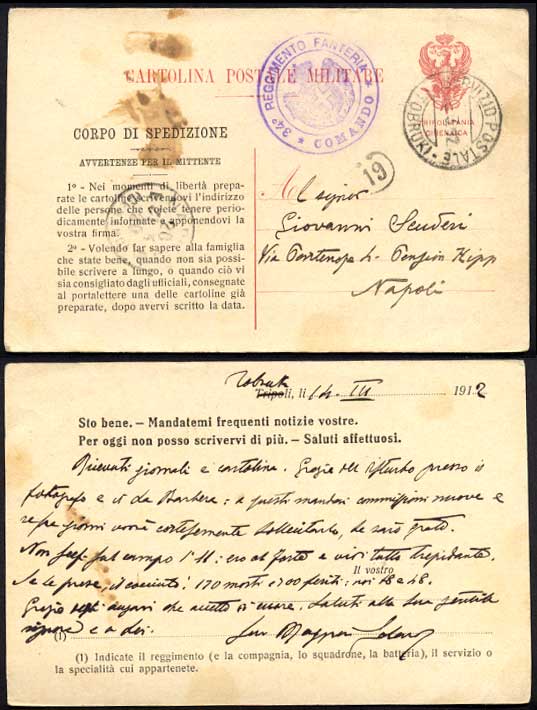 CARTOLINA POSTALE MILITARE
34° REGGIMENTO FANTERIA
COMANDO
TRIPOLITANIA
CIRENAICA
SERVIZIO POSTALE
TOBRUK
CORPO DI SPEDIZIONE
AVVERTENZE PER IL MITTENTE
1° - Nei momenti di libertà prepa-
rate le cartoline scrivendovi l'indirizzo
delle persone che volete tenere perio-
dicamente informate e apponendovi la
vostra firma.
2° - Volendo far sapere alla famiglia
che state bene, quando non sia possi-
bile scrivere a lungo, o quando ciò vi
sia consigliato dagli ufficiali, consegnate
al portalettere una delle cartoline già
preparate, dopo avervi scritto la data.
19
Al signor
Giovanni Scuderi
Via Partenope Pension Kipp
Napoli
Tobruk
Tripoli, li 14. III 1912
Sto bene. – Mandatemi frequenti notizie vostre.
Per oggi non posso scrivervi di più. – Saluti affettuosi.
Ricevuti giornali e cartoline. Grazie del disturbo presso il
fotografo e il da Barbera: a questi mandai commissioni nuove e
giorni verrà cortesemente sollecitarlo, le sarò grato.
Non feci campo l'11: ero al forte e vidi tutto trepidante.
Il vostro
170 morti e 200 feriti: noi 18 e 48.
Grazie auguri che accetto di cuore. Saluti alla sua gentile
signora e a lei.
(1)
(1) Indicate il reggimento (e la compagnia, lo squadrone, la batteria), il servizio o
la specialità cui appartenete.